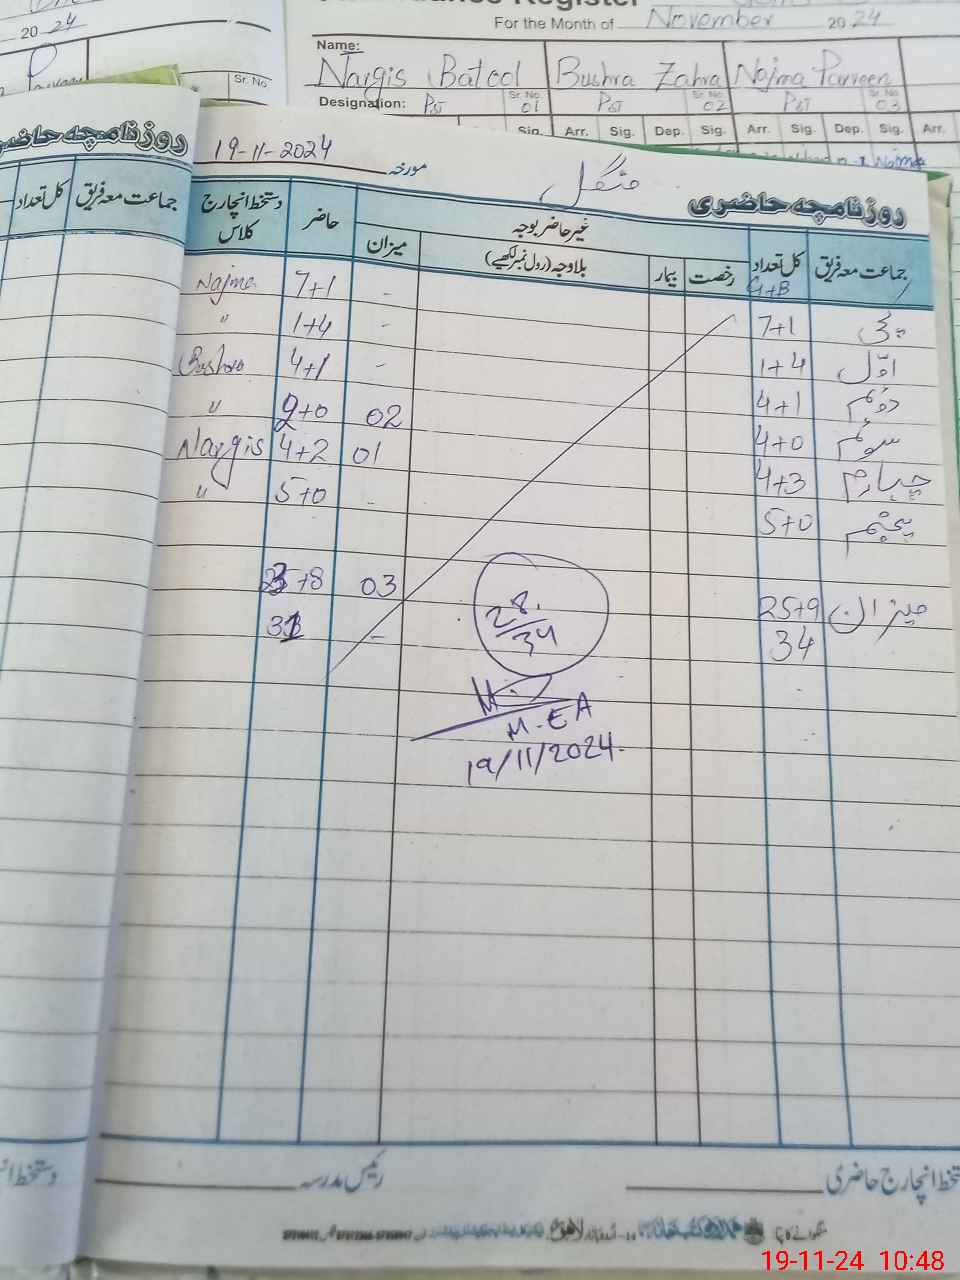 For the Month of November 2024
2024
Name: Nargis Batool Bushra Zahra Najma Parveen
Sr. No
Designation: PST Sr. No. 01 PST Sr. No. 02 PST Sr. No. 03
Sig. Arr. Sig. Dep. Sig. Arr. Sig. Dep. Sig. Arr.
Najma
روزنامچہ حاضری منگل مورخہ 19-11-2024
روزنامچہ حاضری
جماعت معہ فریق کل تعداد G+B غیر حاضر بوجہ حاضر دستخط انچارج کلاس
رخصت بیمار بلاوجہ (رول نمبر لکھیے) میزان
جماعت معہ فریق کل تعداد
کچی 7+1 - 7+1 Najma
اوّل 1+4 - 1+4 "
دوئم 4+1 - 4+1 Bushra
سوئم 4+0 02 2+0 "
چہارم 4+3 01 4+2 Nargis
پنجم 5+0 - 5+0 "
میزان 25+9 03 +8
34 -
28.
34
M.E A
19/11/2024.
دستخط انچارج حاضری رئیس مدرسہ
19-11-24 10:48